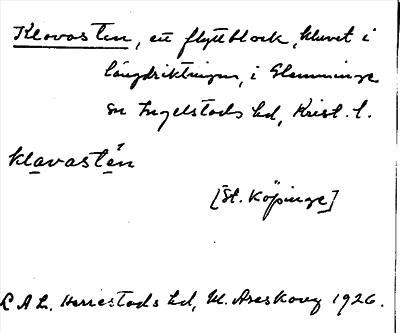 Klovasten, ett flyttblock, kluvet i
längdriktningen, i Glemminge
sn Ingelstads hd, Krist. l.
klavastén
[St. Köpinge]
LAL. Herrestads hd, M. Areskoug 1926.